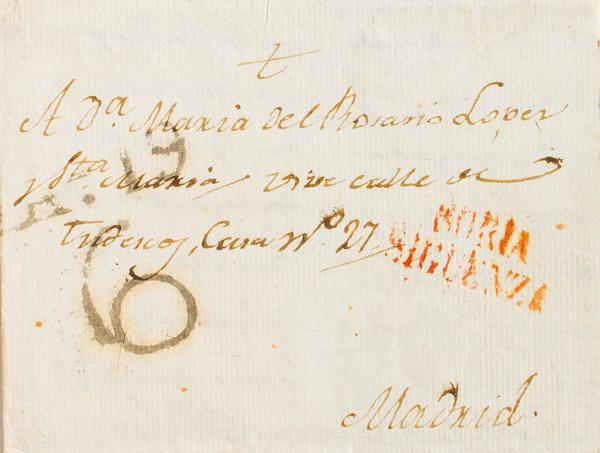 A D.ª Maria del Rosario Loper
y Sta Maria vive calle de
Tudescos, Casa Nº 27
SORIA
SIGUENZA
6
Madrid.